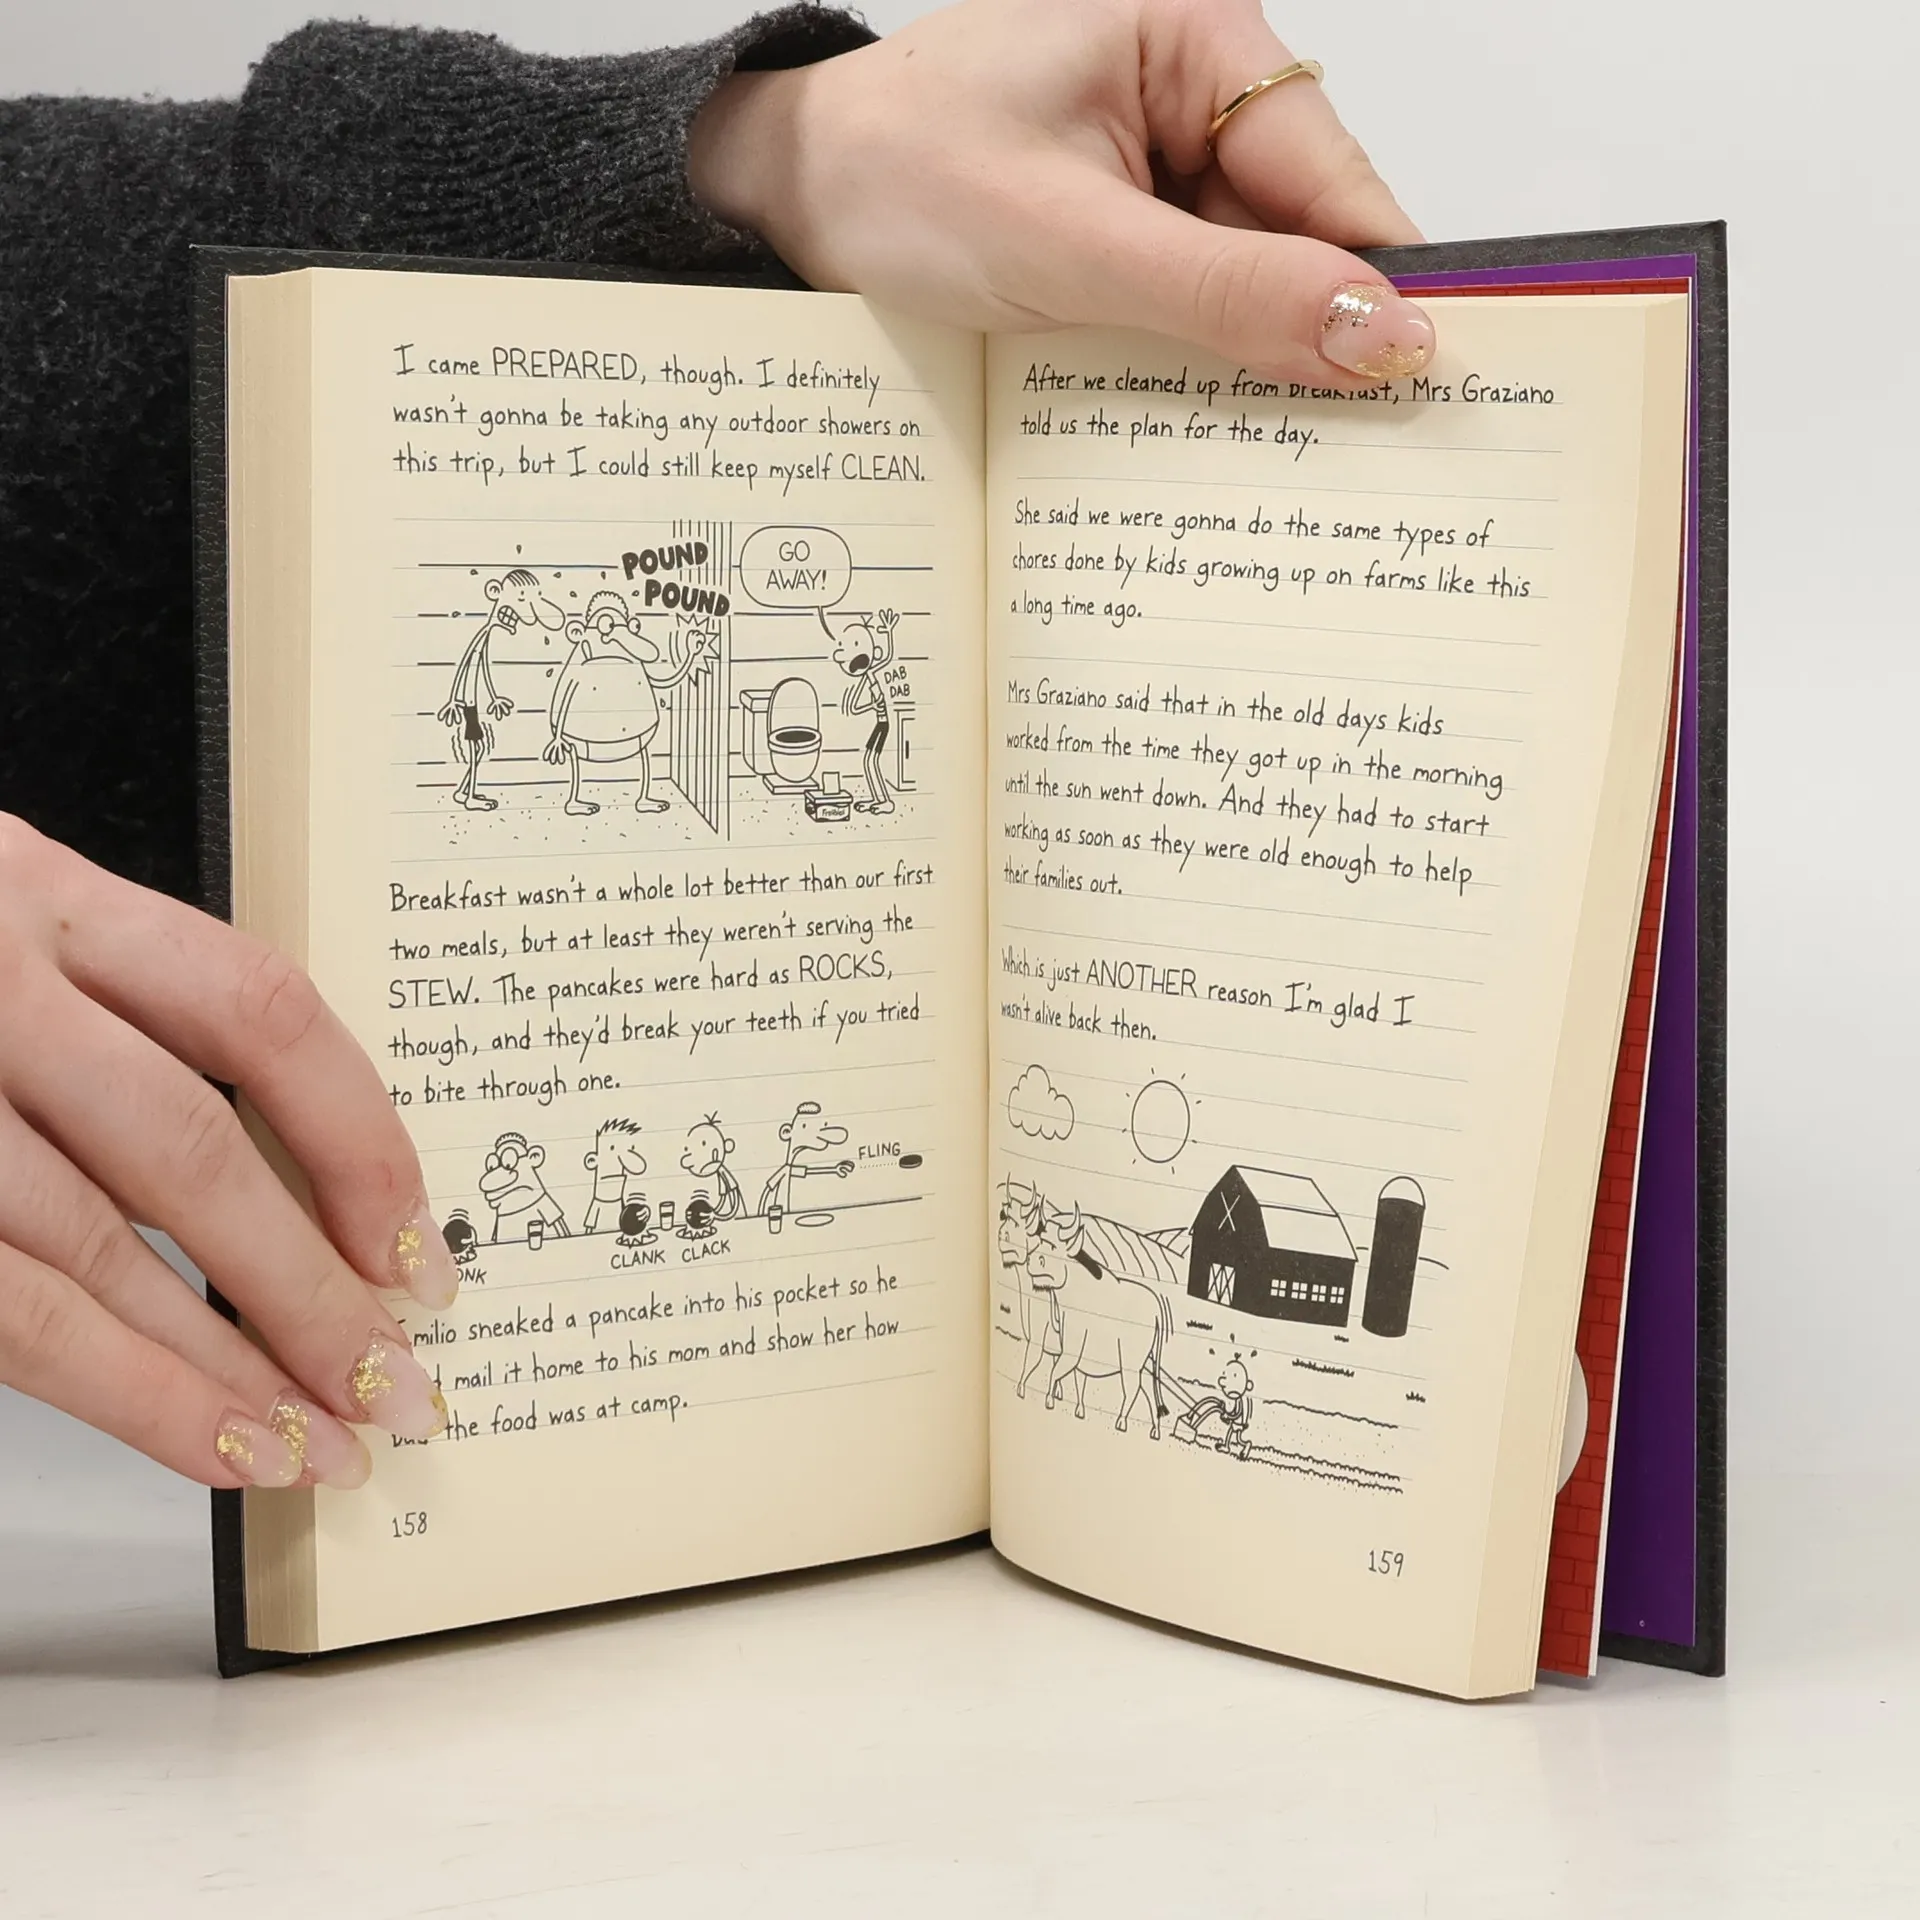 I came PREPARED, though. I definitely
wasn't gonna be taking any outdoor showers on
this trip, but I could still keep myself CLEAN.
POUND
POUND
GO
AWAY!
DAB
DAB
Breakfast wasn't a whole lot better than our first
two meals, but at least they weren't serving the
STEW. The pancakes were hard as ROCKS,
though, and they'd break your teeth if you tried
to bite through one.
FLING
CLANK CLACK
sneaked a pancake into his pocket so he
mail it home to his mom and show her how
the food was at camp.
158
After we cleaned up from breakfast, Mrs Graziano
told us the plan for the day.
She said we were gonna do the same types of
chores done by kids growing up on farms like this
a long time ago.
Mrs Graziano said that in the old days kids
worked from the time they got up in the morning
until the sun went down. And they had to start
working as soon as they were old enough to help
their families out.
Which is just ANOTHER reason I'm glad I
wasn't alive back then.
159